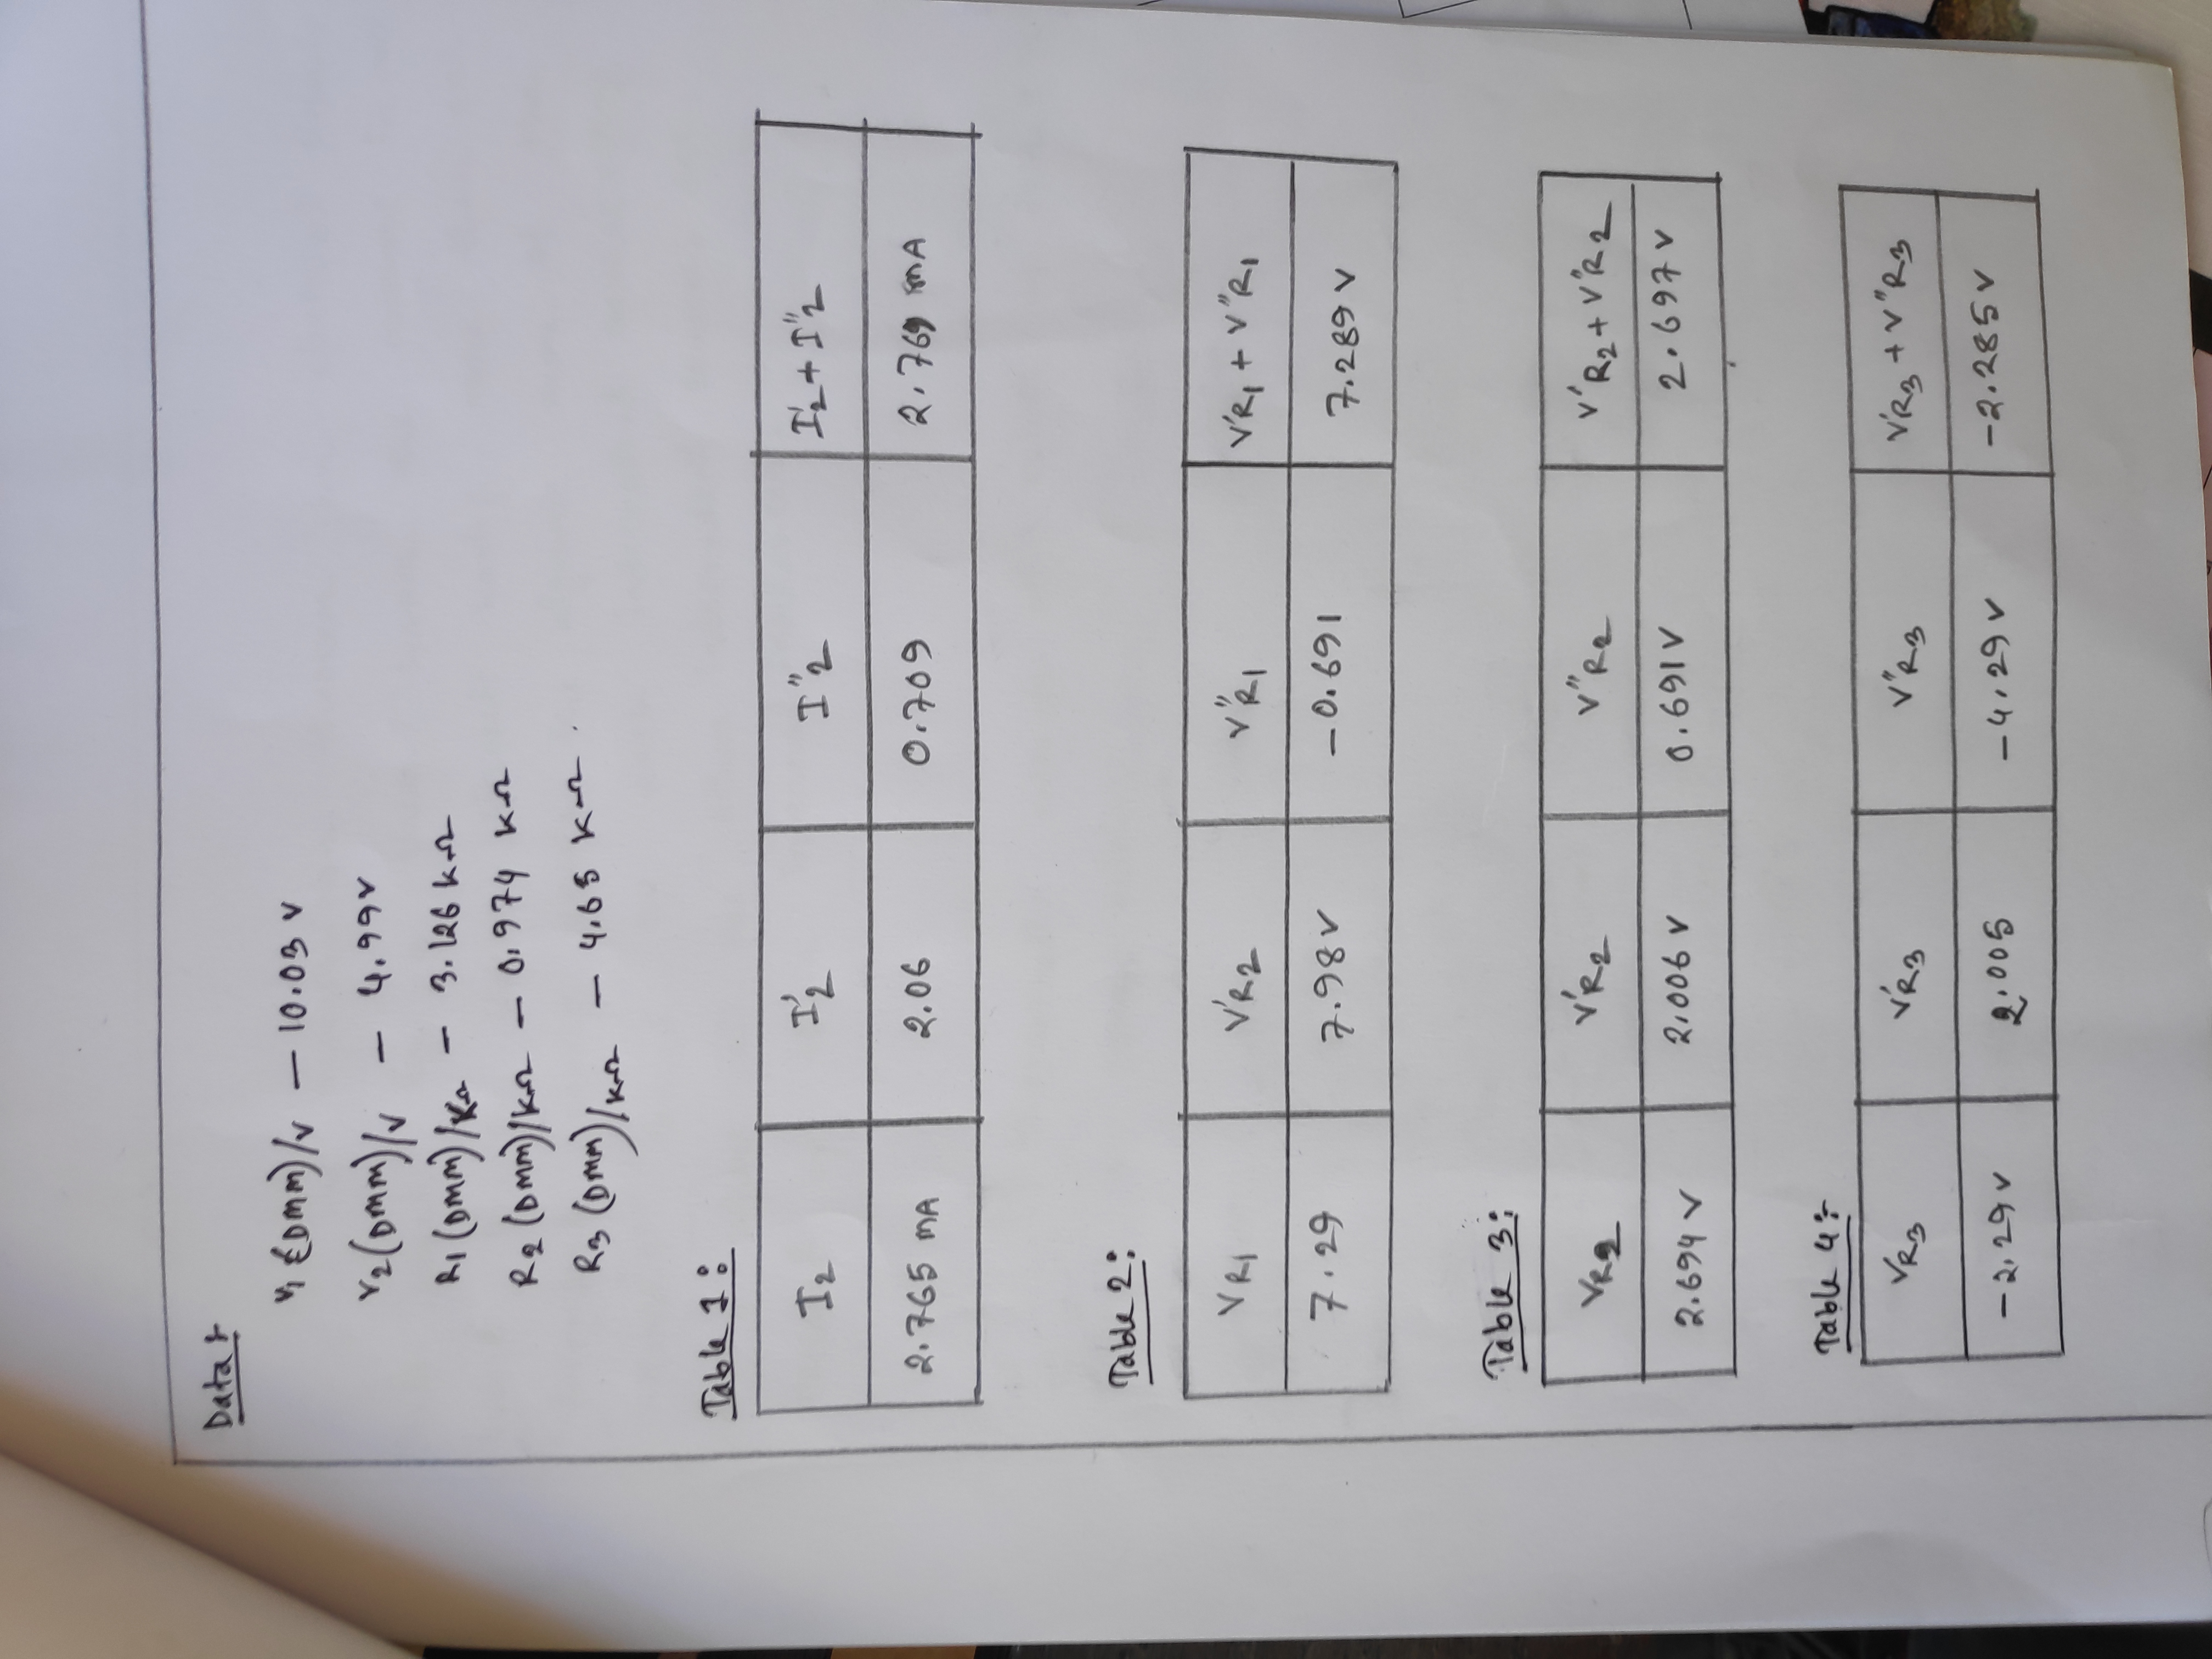 Data :-
V1 (DMM)/V — 10.03 V
V2 (DMM)/V — 4.99V
R1 (DMM)/KΩ — 3.126 KΩ
R2 (DMM)/KΩ — 0.974 KΩ
R3 (DMM)/KΩ — 4.65 KΩ.
Table 1:
I2 I'2 I"2 I'2 + I"2
2.765 mA 2.06 0.709 2.769 mA
Table 2:
VR1 V'R2 V"R1 V'R1 + V"R1
7.29 7.98V -0.691 7.289 V
Table 3:
VR2 V'R2 V"R2 V'R2 + V"R2
2.694 V 2.006 V 0.691V 2.697 V
Table 4:-
VR3 V'R3 V"R3 V'R3 + V"R3
-2.29 V 2.005 -4.29 V -2.285 V